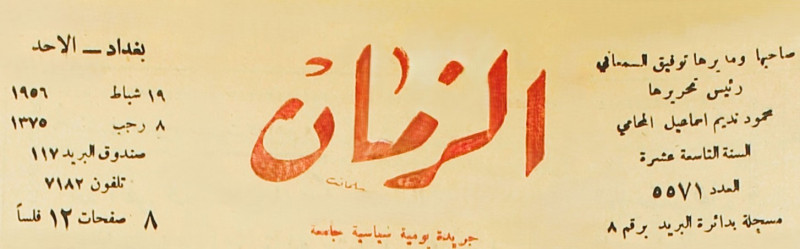 صاحبها ومديرها توفيق السمعاني
رئيس تحريرها
محمود نديم اسماعيل المحامي
السنة التاسعة عشرة
العدد ٥٥٧١
مسجلة بدائرة البريد برقم ٨
الزمان
جريدة يومية سياسية جامعة
بغداد — الاحد
١٩ شباط ١٩٥٦
٨ رجب ١٣٧٥
صندوق البريد ١١٧
تلفون ٧١٨٢
٨ صفحات ١٢ فلساً